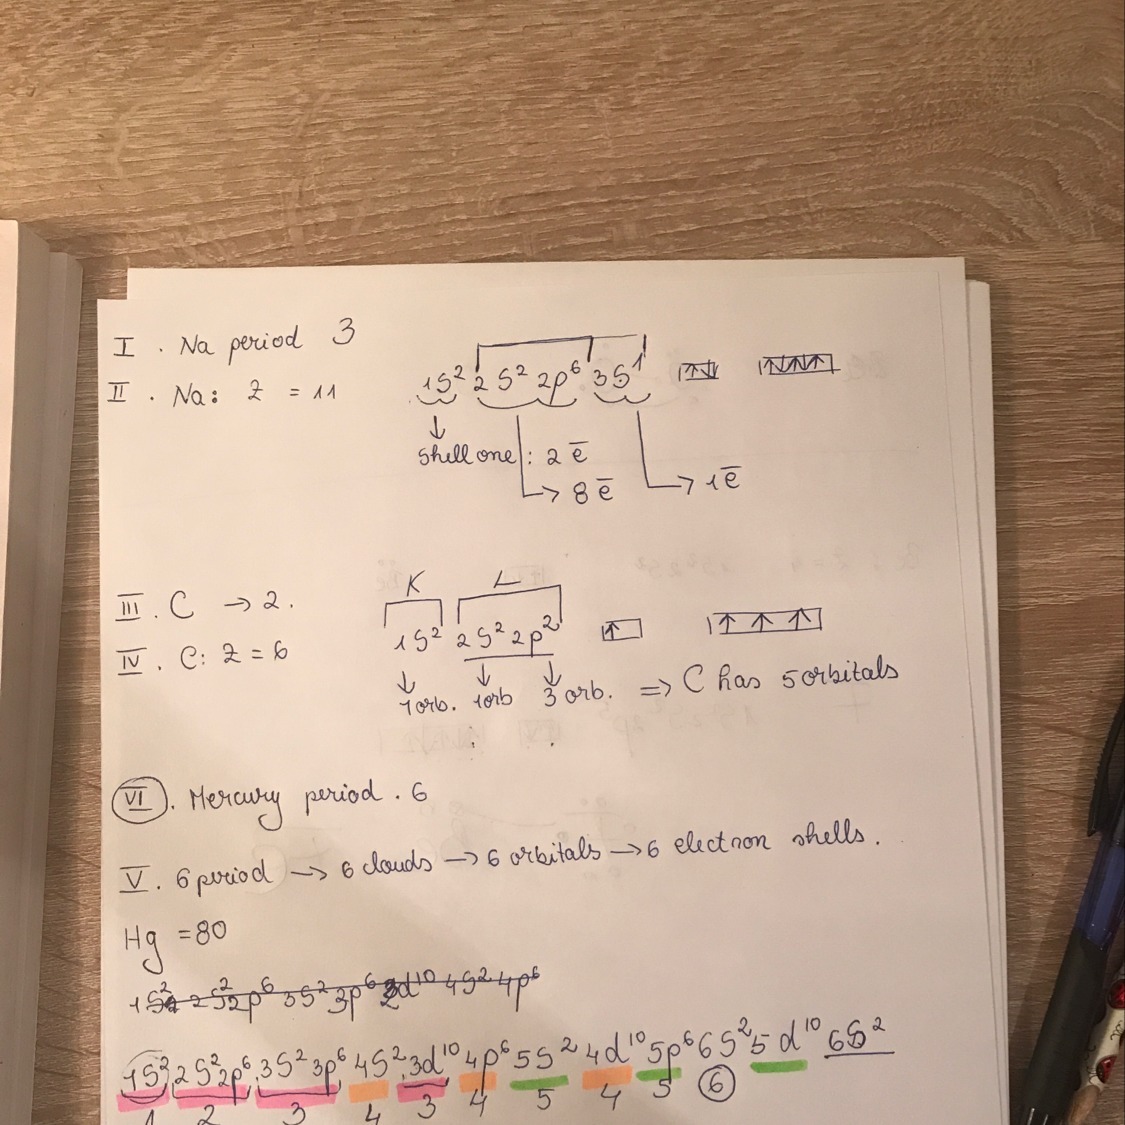 I. Na period 3
II. Na: Z = 11 1s² 2s² 2p⁶ 3s¹
shell one: 2 e̅
8 e̅
1 e̅
K L
III. C → 2.
1s² 2s² 2p²
IV. C: Z = 6
1orb. 1orb 3 orb. ⇒ C has 5 orbitals
VI. Mercury period. 6
V. 6 period → 6 clouds → 6 orbitals → 6 electron shells.
Hg = 80
1s² 2s² 2p⁶ 3s² 3p⁶ 3d¹⁰ 4s² 4p⁶
1s² 2s² 2p⁶ 3s² 3p⁶ 4s² 3d¹⁰ 4p⁶ 5s² 4d¹⁰ 5p⁶ 6s² 5d¹⁰ 6s²
1 2 3 4 3 4 5 4 5 6